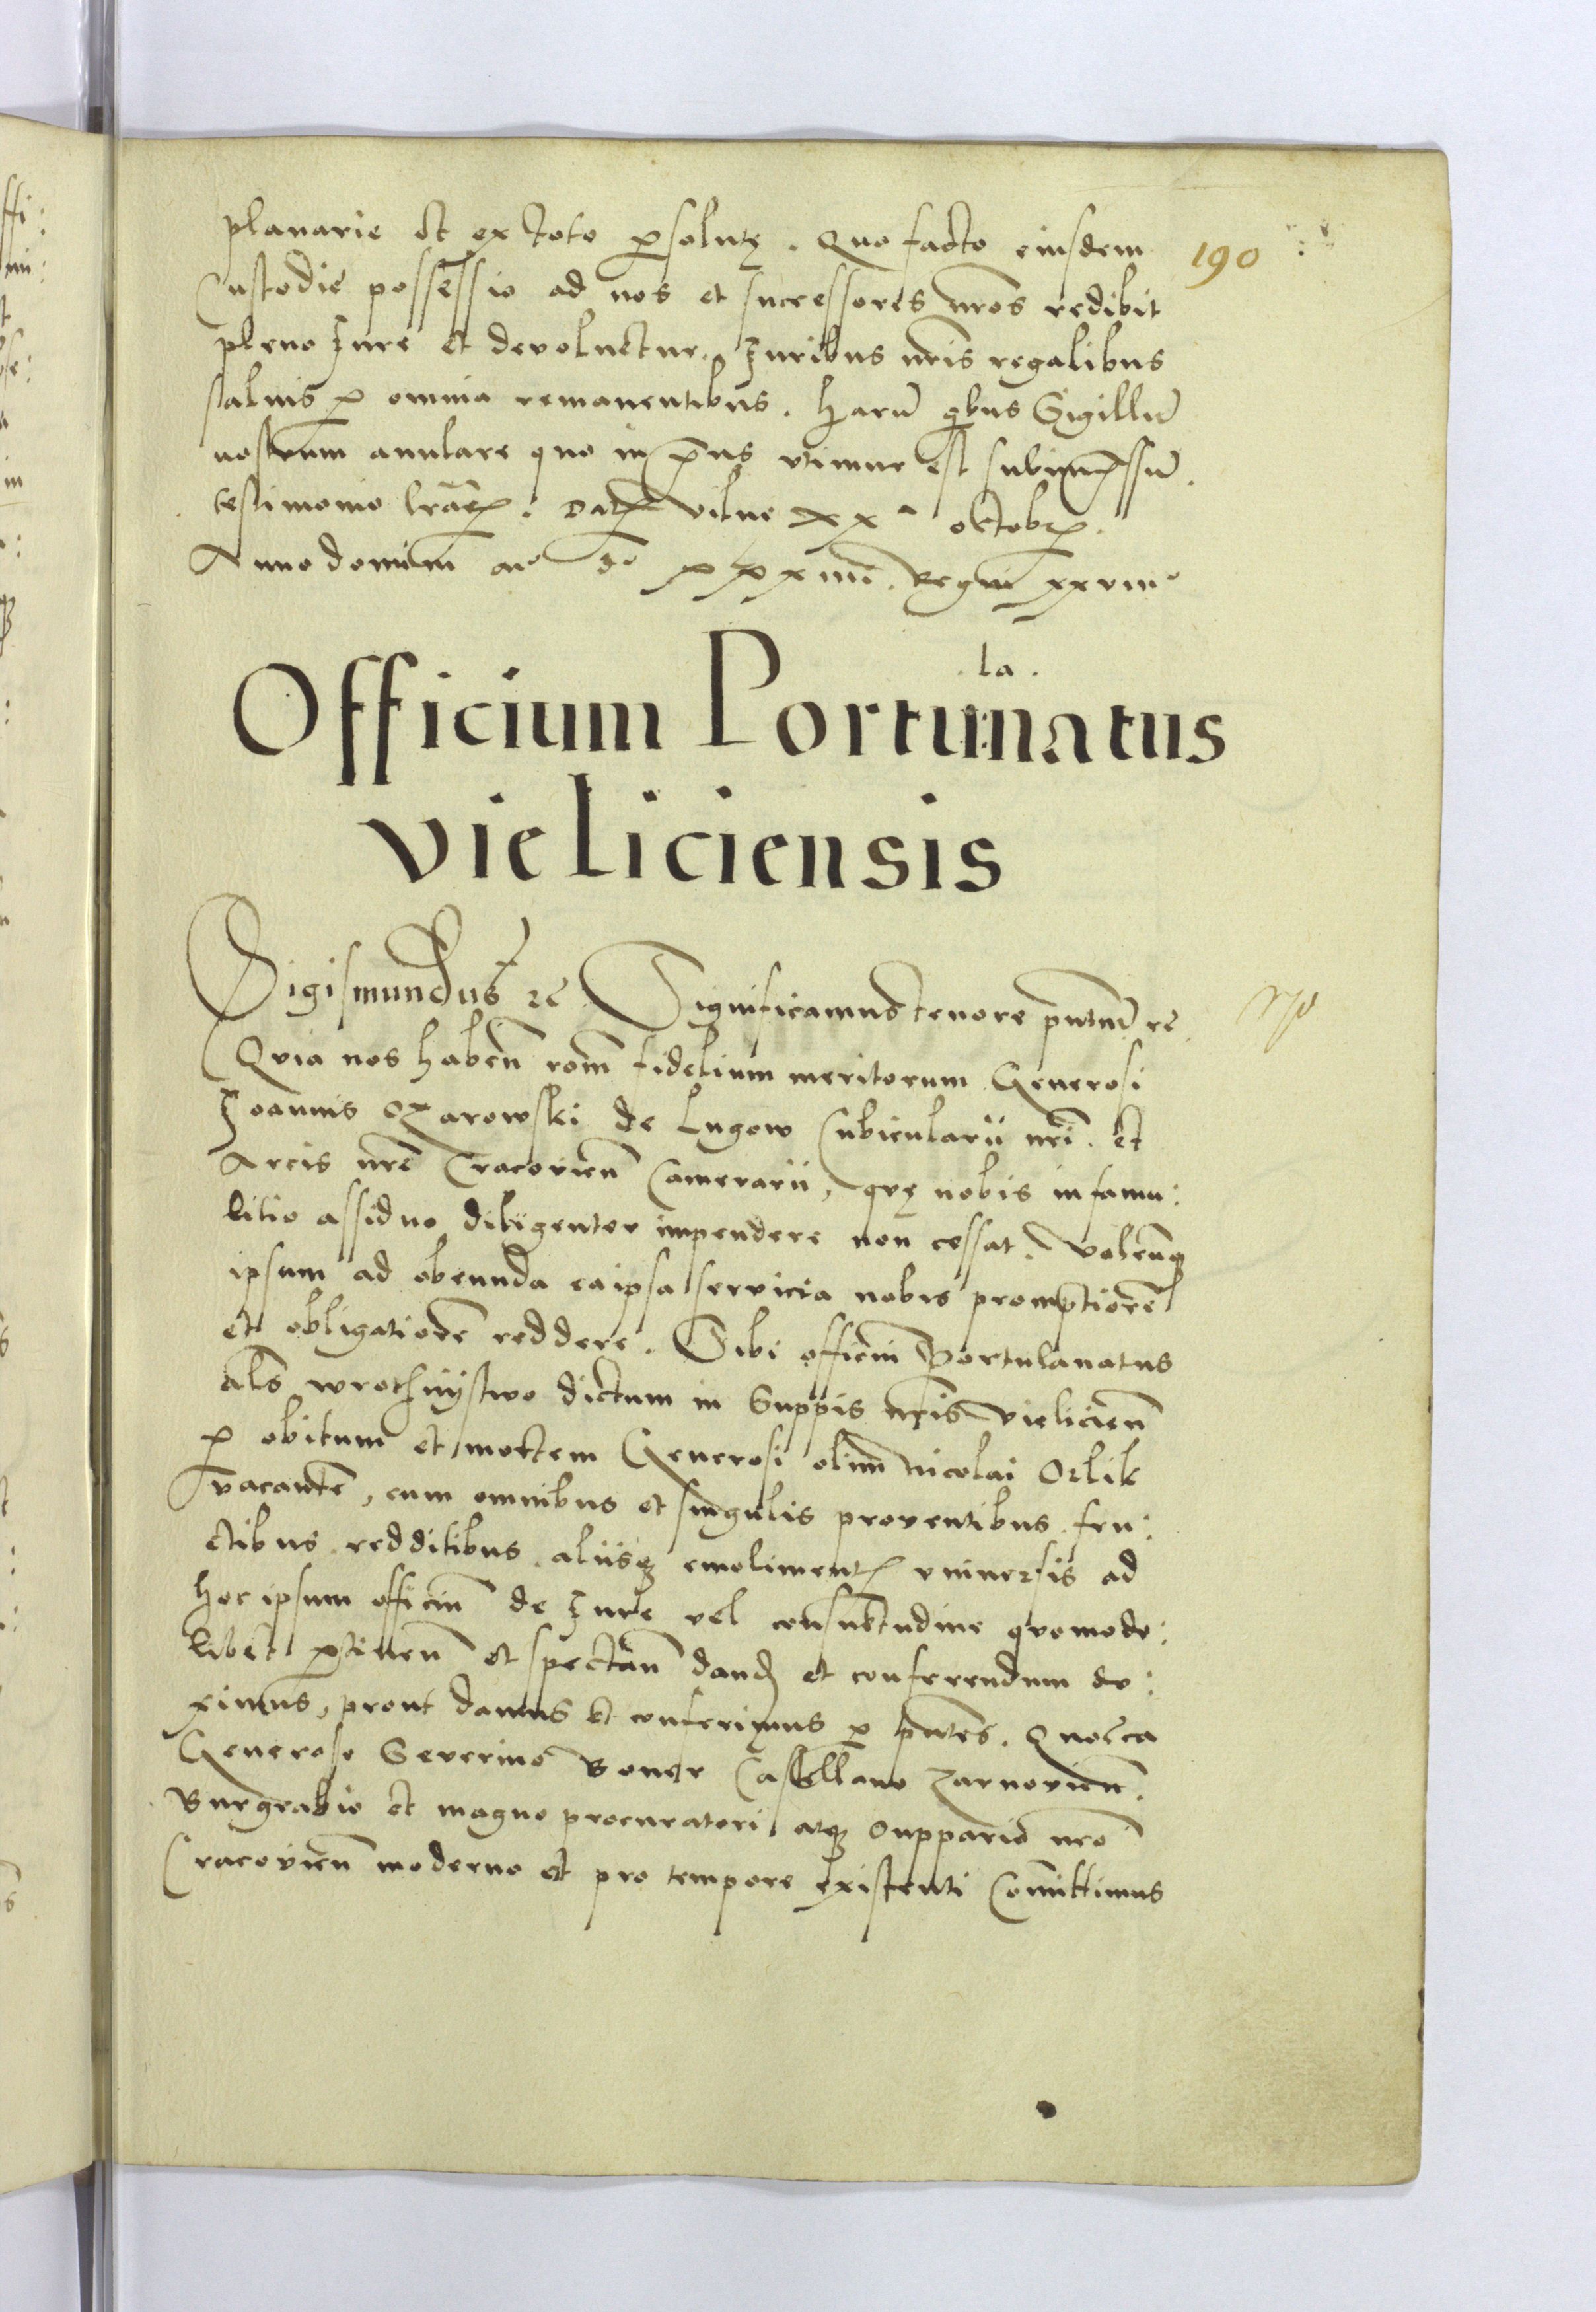 planarie et ex toto ꝑsolutę. Quo facto eiusdem
190
Custodie possessio ad nos et successores nr̃os redibit
pleno Jure et devoluetur. Juribus nr̃is regalibus
saluis ꝑ omnia remanentibus. Harũ qibus Sigillũ
nostrum anulare quo in pñs vtimur est subimp̃ssũ.
testimonio lrãꝝ. Datꝭ Vilne xxᵃ octobrꝭ.
Anno domini mº dº xxxiiii. Regni xxviiiº
.la.
Officium Portunatus
vieliciensis
Sigismundus ꝛc Significamus tenore pñtiũ ꝛc
Quia nos habeñ roñ fidelium meritorum Generosi
Joannis Ozarowski de Lugow Cubicularii nr̃i. et
Arcis nr̃e Cracovieñ Camerarii, quę nobis in famu:
litio assiduo diligenter impendere non cessat. Volenꝗ
ipsum ad obeunda ea ipsa servicia nobis promptiorẽ
et obligatiorẽ reddere. Sibi officiũ Portulanatus
als̃ wrothnÿstwo dictum in Suppis nr̃is vielicieñ
ꝑ obitum et mortem Generosi olim Nicolai Orlik
vacantẽ, cum omnibus et singulis proventibus. fru:
ctibus. redditibus. aliisqꝫ emolimentꝭ vniuersis ad
hoc ipsum officiũ de Jure vel consuetudine quomodo:
libet ꝑtineñ et spectañ dandꝭ et conferendum du:
ximus, prout damus et conferimus ꝑ pñtes. Quocca
Generoso Severino Boner Castellano Zarnovieñ.
Burgrabio et magno procuratori atqꝫ Suppario nr̃o
Cracovieñ moderno et pro tempore existenti Com̃ittimus